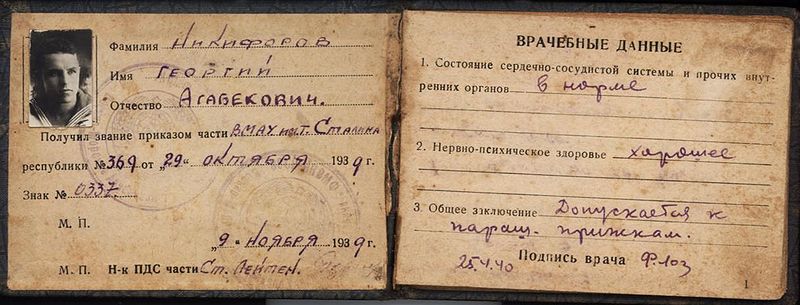 Фамилия Никифоров
Имя Георгий
Отчество Агабекович.
Получил звание приказом части ВМАУ им. т. Сталина
республики № 369 от „29" октября 1939 г.
Знак № 0337
М. П.
„9" ноября 1939 г.
М. П. Н-к ПДС части Ст. Лейтен.
ВРАЧЕБНЫЕ ДАННЫЕ
1. Состояние сердечно-сосудистой системы и прочих внут-
ренних органов в норме
2. Нервно-психическое здоровье хорошее
3. Общее заключение Допускается к
параш. прижкам.
25.4.40 Подпись врача
1